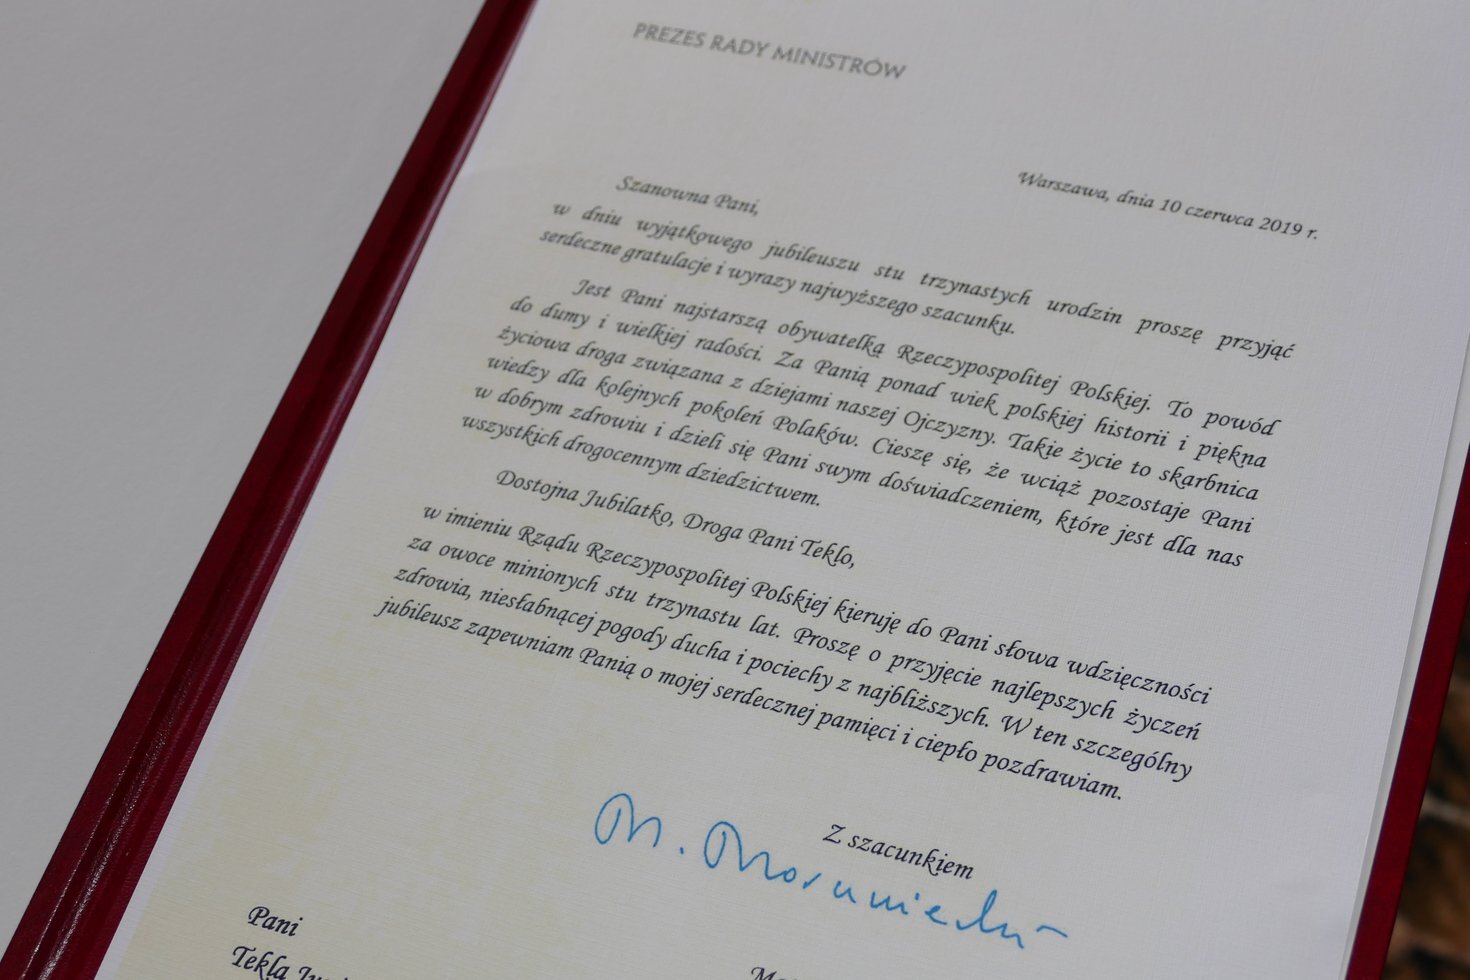 PREZES RADY MINISTRÓW
Warszawa, dnia 10 czerwca 2019 r.
Szanowna Pani,
w dniu wyjątkowego jubileuszu stu trzynastych urodzin proszę przyjąć
serdeczne gratulacje i wyrazy najwyższego szacunku.
Jest Pani najstarszą obywatelką Rzeczypospolitej Polskiej. To powód
do dumy i wielkiej radości. Za Panią ponad wiek polskiej historii i piękna
życiowa droga związana z dziejami naszej Ojczyzny. Takie życie to skarbnica
wiedzy dla kolejnych pokoleń Polaków. Cieszę się, że wciąż pozostaje Pani
w dobrym zdrowiu i dzieli się Pani swym doświadczeniem, które jest dla nas
wszystkich drogocennym dziedzictwem.
Dostojna Jubilatko, Droga Pani Teklo,
w imieniu Rządu Rzeczypospolitej Polskiej kieruję do Pani słowa wdzięczności
za owoce minionych stu trzynastu lat. Proszę o przyjęcie najlepszych życzeń
zdrowia, niesłabnącej pogody ducha i pociechy z najbliższych. W ten szczególny
jubileusz zapewniam Panią o mojej serdecznej pamięci i ciepło pozdrawiam.
Z szacunkiem
M. Morawiecki
Pani
Tekla